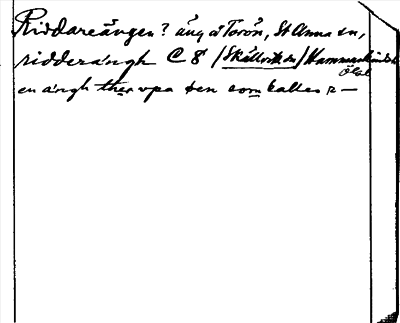 Riddareängen? äng å Torön, St Anna sn,
ridderängh C 8 (Skällviks sn) Hammarkinds hd
Ögl
en ängh ther vpa ten som kalles R —